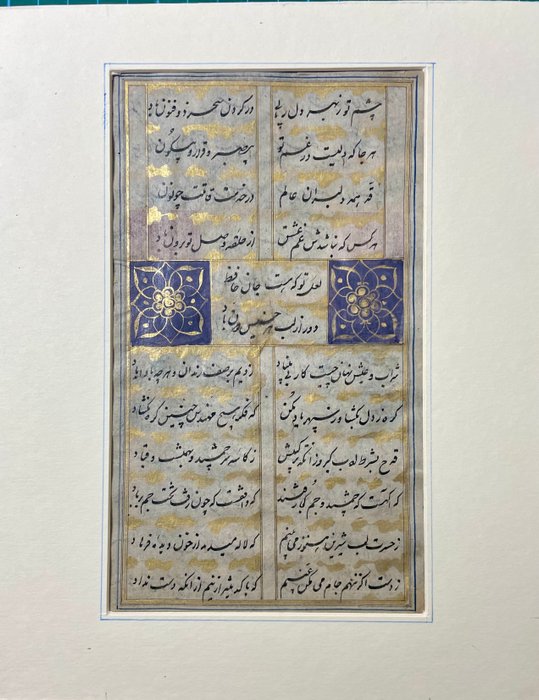 چشم تو ز بهر دلربایی در کردن سحر ذوفنون باد
هر جا که دلیست در غم تو بی صبر و قرار و بی سکون باد
قد همه دلبران عالم در خدمت قامتت چو نون باد
هر کس که نباشدش غم عشق از حلقه وصل تو برون باد
لعل تو که هست جان حافظ
دور از لب هر خسیس دون باد
شراب و عیش نهان چیست کار بی بنیاد زدیم بر صف رندان و هر چه بادا باد
گره ز دل بگشا وز سپهر یاد مکن که فکر هیچ مهندس چنین گره نگشاد
قدح بشرط ادب گیر زانکه ترکیبش ز کاسه سر جمشید و بهمنست و قباد
که جمشید و جم کجا رفتند که واقفست که چون رفت تخت جم بر باد
ز حسرت لب شیرین هنوز می بینم که لاله میدمد از خون دیده فرهاد
ز دست اگر ننهم جام می مکن عیبم که دست نداد